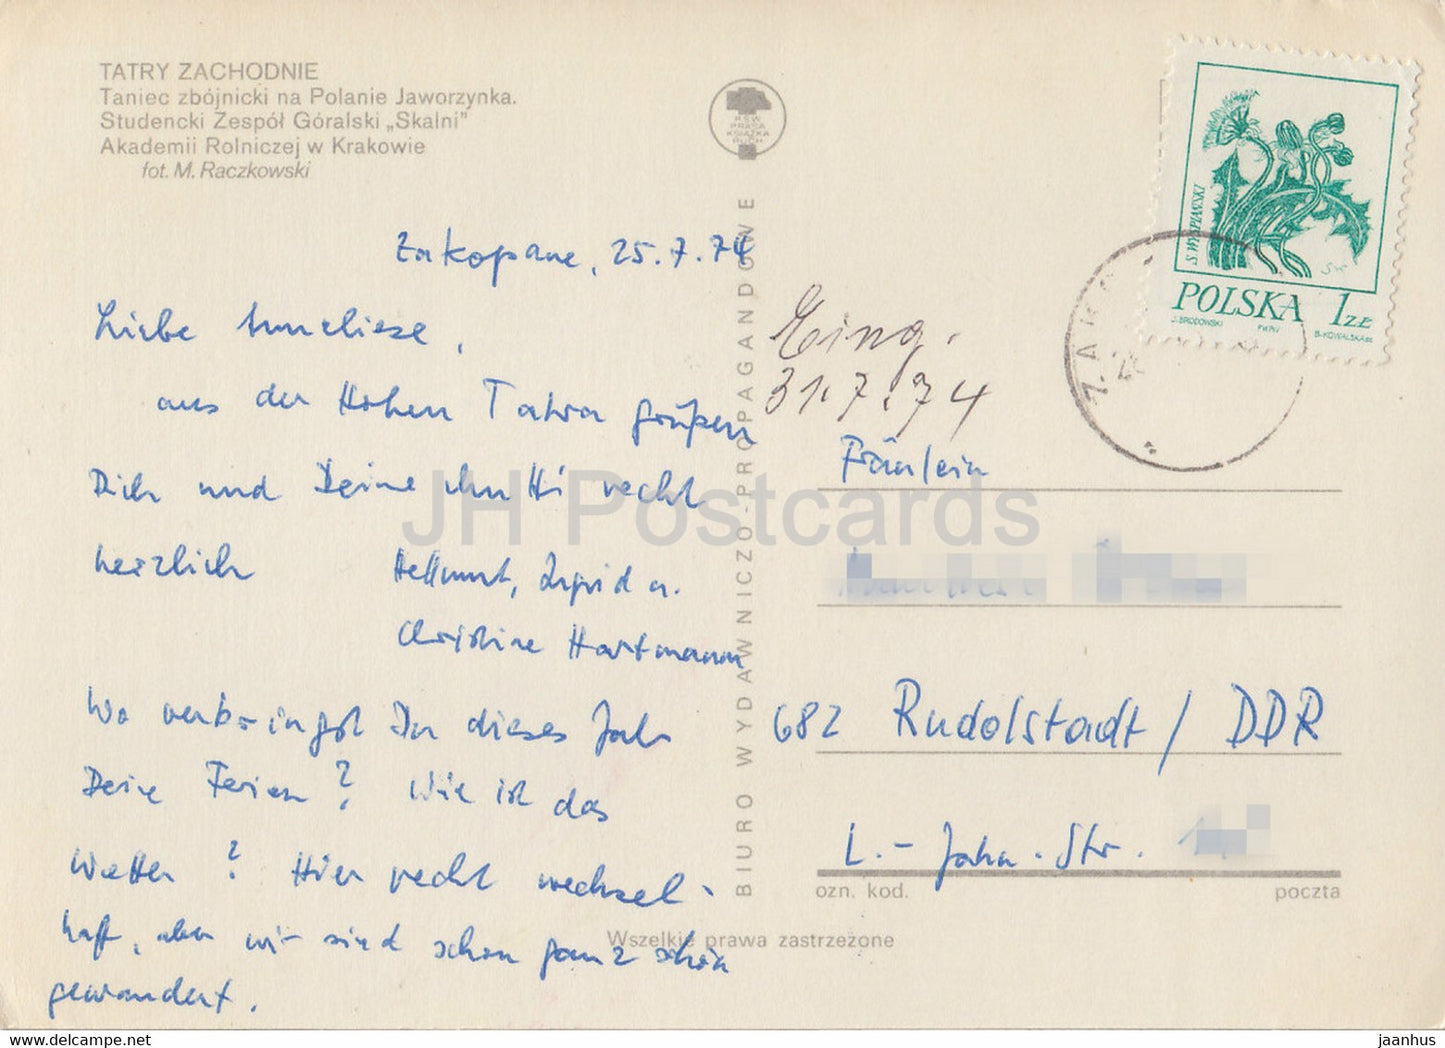 TATRY ZACHODNIE
Taniec zbójnicki na Polanie Jaworzynka.
Studencki Zespół Góralski „Skalni"
Akademii Rolniczej w Krakowie
fot. M. Raczkowski
RSW
PRASA
KSIĄŻKA
RUCH
S. WYSPIAŃSKI
POLSKA 1 ZŁ
J. BRODOWSKI PWPW B. KOWALSKA
Zakopane, 25.7.74
Liebe Anneliese,
aus der Hohen Tatra grüßen
Dich und Deine Mutti recht
herzlich Hellmut, Ingrid u.
Christine Hartmann
Wo verbringst Du dieses Jahr
Deine Ferien? Wie ist das
Wetter? Hier recht wechsel-
haft, aber wir sind schon ganz schön
gewandert.
BIURO WYDAWNICZO-PROPAGANDOWE
Eing.
31.7.74
Fräulein
682 Rudolstadt / DDR
L.-Jahn-Str.
ozn. kod. poczta
Wszelkie prawa zastrzeżone
JH Postcards
jaanhus
https://www.delcampe.net